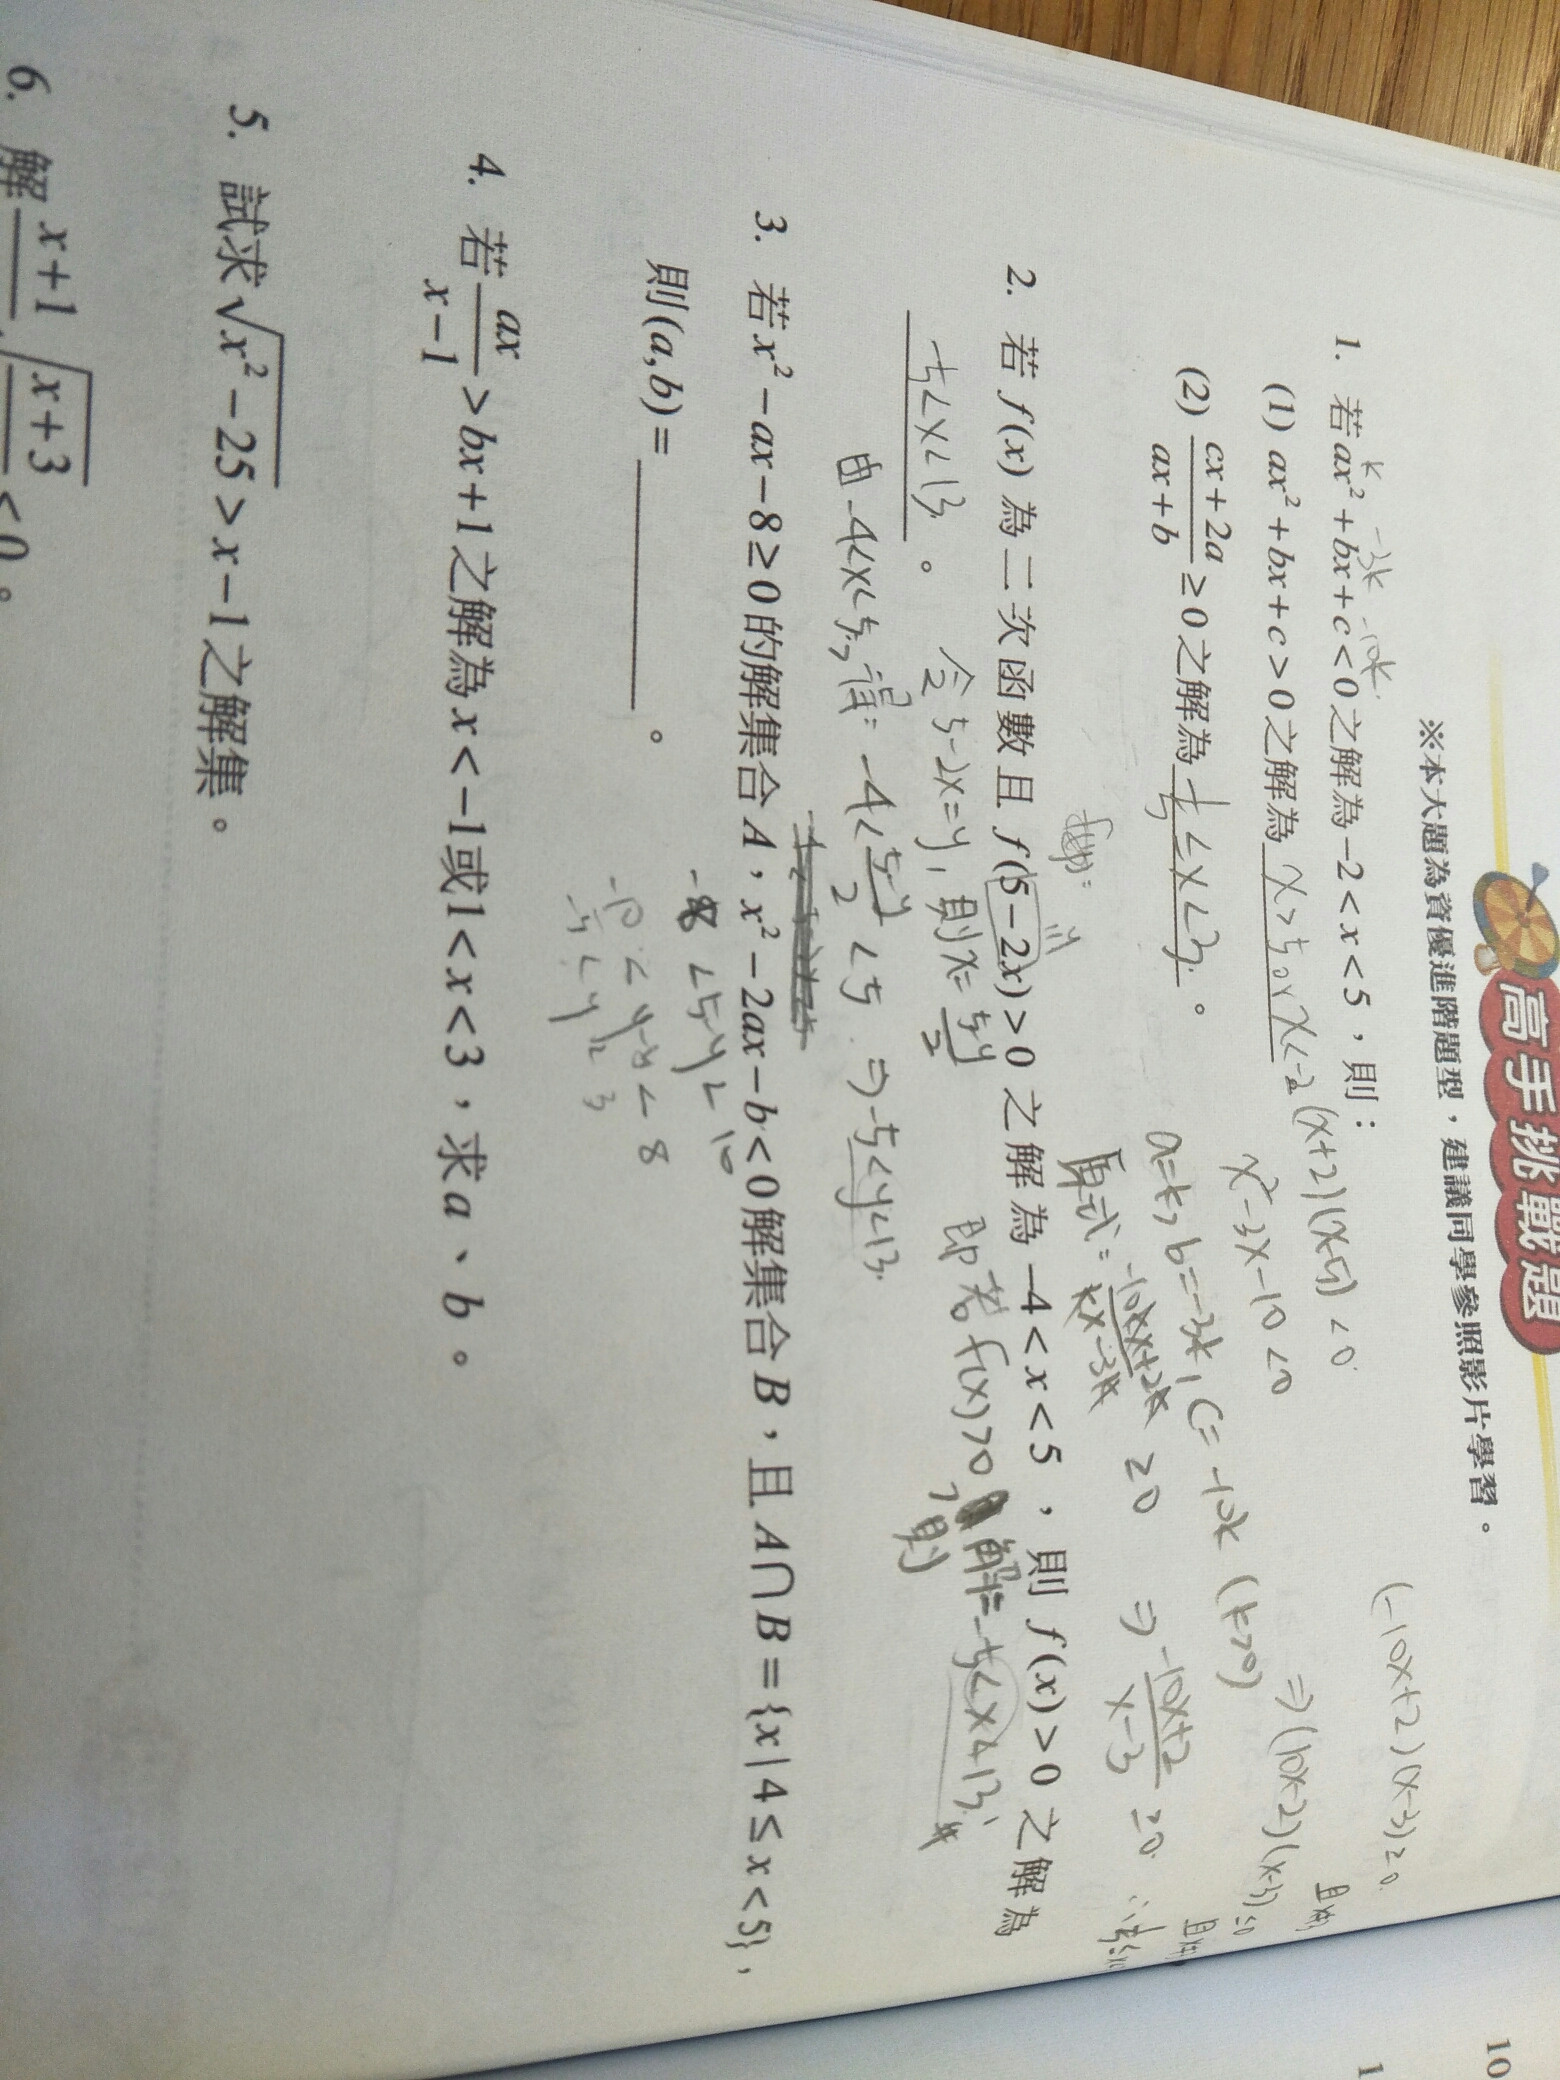 高手挑戰題
※本大題為資優進階題型，建議同學參照影片學習。
1. 若ax²+bx+c<0之解為-2<x<5，則：
k -3k -10k
(1) ax²+bx+c>0之解為 x>5 or x<-2
(x+2)(x-5)<0
x²-3x-10<0
(2) (cx+2a)/(ax+b)≥0之解為 1/5≤x<3。
a=k, b=-3k, c=-10k (k>0)
原式= (-10kx+2k)/(kx-3k) ≥0 ⇒ (-10x+2)/(x-3) ≥0
(-10x+2)(x-3)≥0
⇒(10x-2)(x-3)≤0
2. 若 f(x) 為二次函數且 f(5-2x)>0 之解為 -4<x<5，則 f(x)>0 之解為
-5<x<13。
令5-2x=y, 則x=(5-y)/2
即若f(x)>0, 則解=-5<x<13
由-4<x<5, 得: -4<(5-y)/2<5 ⇒-5<y<13
-8<5-y<10
-10<y-5<8
-5<y<13
3. 若x²-ax-8≥0的解集合A，x²-2ax-b<0解集合B，且A∩B={x|4≤x<5}，
則(a,b)=________。
4. 若 ax/(x-1) >bx+1之解為x<-1或1<x<3，求a、b。
5. 試求√(x²-25)>x-1之解集。
6. 解
x+1 √(x+3)
<0。
10
1